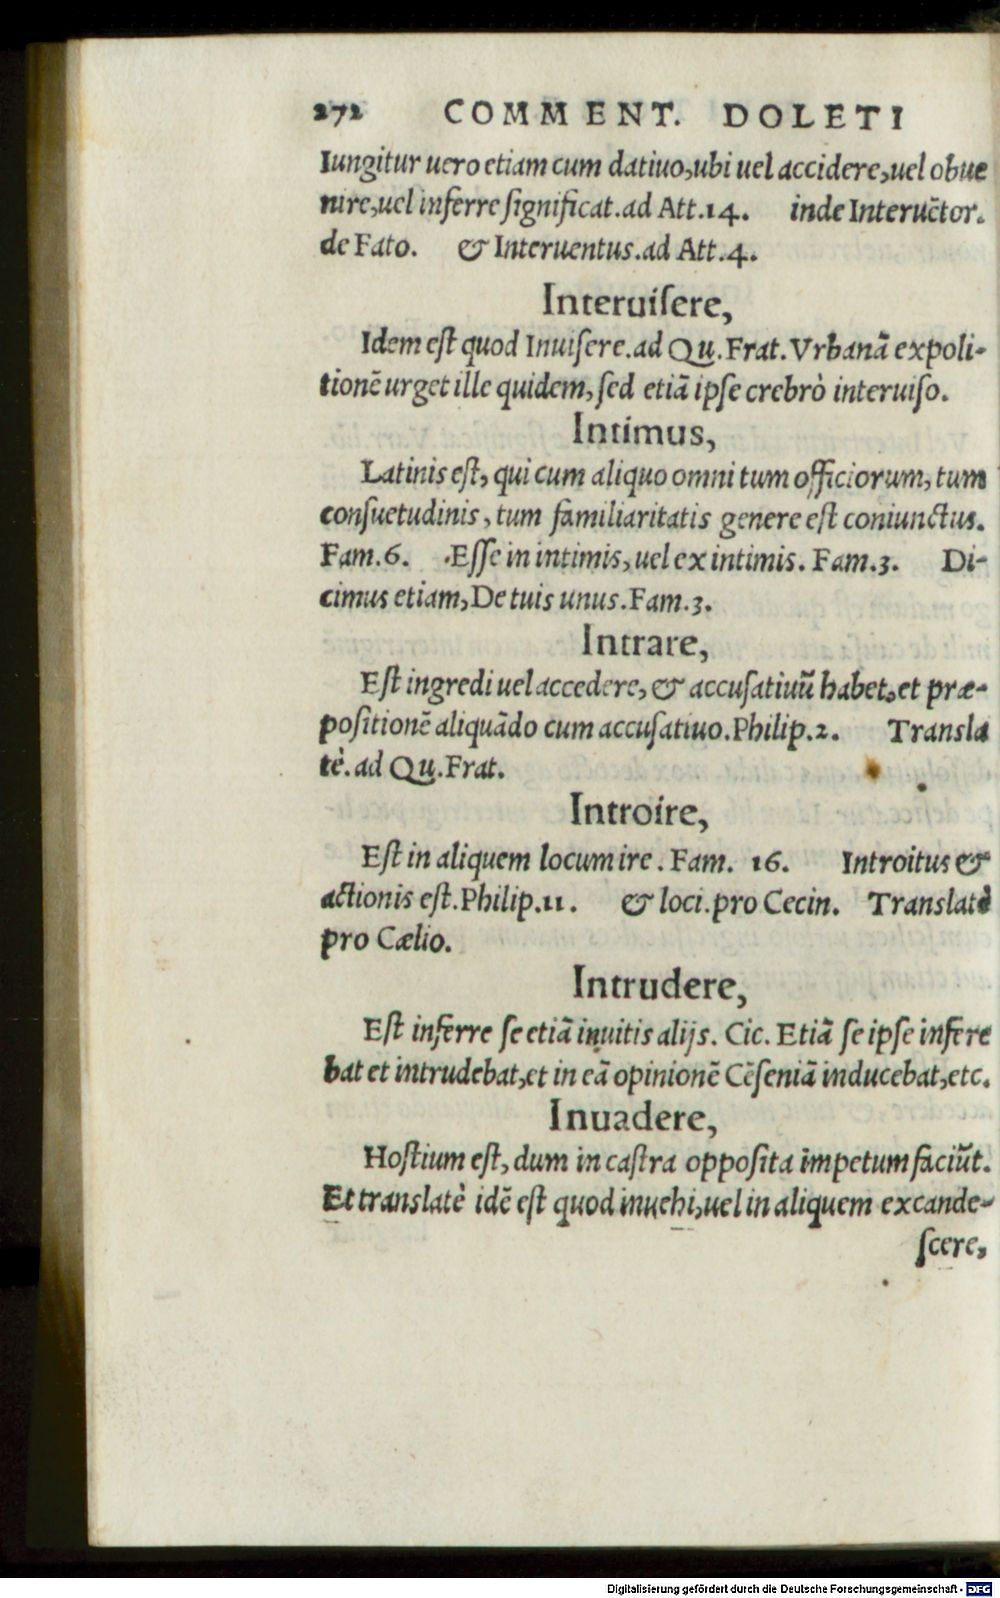 272 COMMENT. DOLETI
Iungitur uero etiam cum datiuo,ubi uel accidere,uel obue
nire,uel inferre ſignificat.ad Att.14. inde Interuẽtor.
de Fato. & Interuentus.ad Att.4.
Interuiſere,
Idem eſt quod Inuiſere.ad Qu.Frat.Vrbanã expoli-
tionẽ urget ille quidem, ſed etiã ipſe crebrò interuiſo.
Intimus,
Latinis eſt, qui cum aliquo omni tum officiorum, tum
conſuetudinis, tum familiaritatis genere eſt coniunctus.
Fam.6. Eſſe in intimis, uel ex intimis. Fam.3. Di-
cimus etiam, De tuis unus.Fam.3.
Intrare,
Eſt ingredi uel accedere, & accuſatiuũ habet,et præ-
poſitionẽ aliquãdo cum accuſatiuo.Philip.2. Transla
tè.ad Qu.Frat.
Introire,
Eſt in aliquem locum ire. Fam. 16. Introitus &
actionis eſt.Philip.11. & loci.pro Cecin. Translatè
pro Cælio.
Intrudere,
Eſt inferre ſe etiã inuitis alijs. Cic. Etiã ſe ipſe infere
bat et intrudebat,et in eã opinionẽ Cẽſeniã inducebat,etc.
Inuadere,
Hoſtium eſt, dum in caſtra oppoſita impetum faciũt.
Et translatè idẽ eſt quod inuehi,uel in aliquem excande-
ſcere,
Digitalisierung gefördert durch die Deutsche Forschungsgemeinschaft - DFG